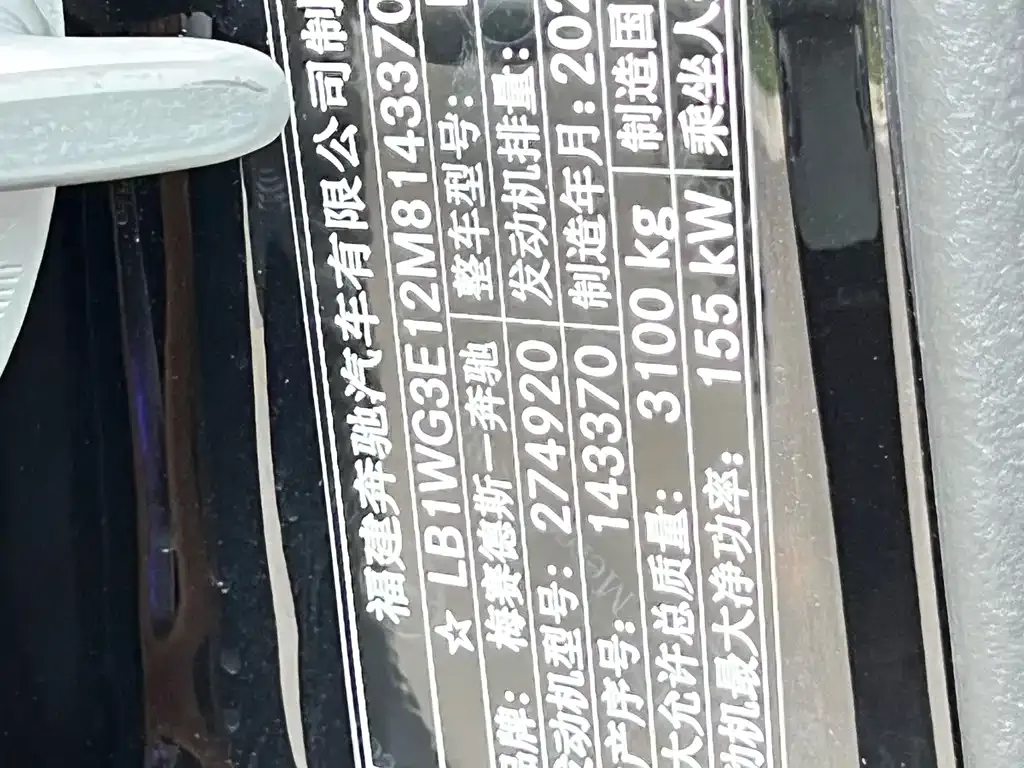 福建奔驰汽车有限公司制
☆ LB1WG3E12M8143370
品牌: 梅赛德斯一奔驰 整车型号:
发动机型号: 274920 发动机排量:
产序号: 143370 制造年月: 202
大允许总质量: 3100 kg 制造国
动机最大净功率: 155 kW 乘坐人